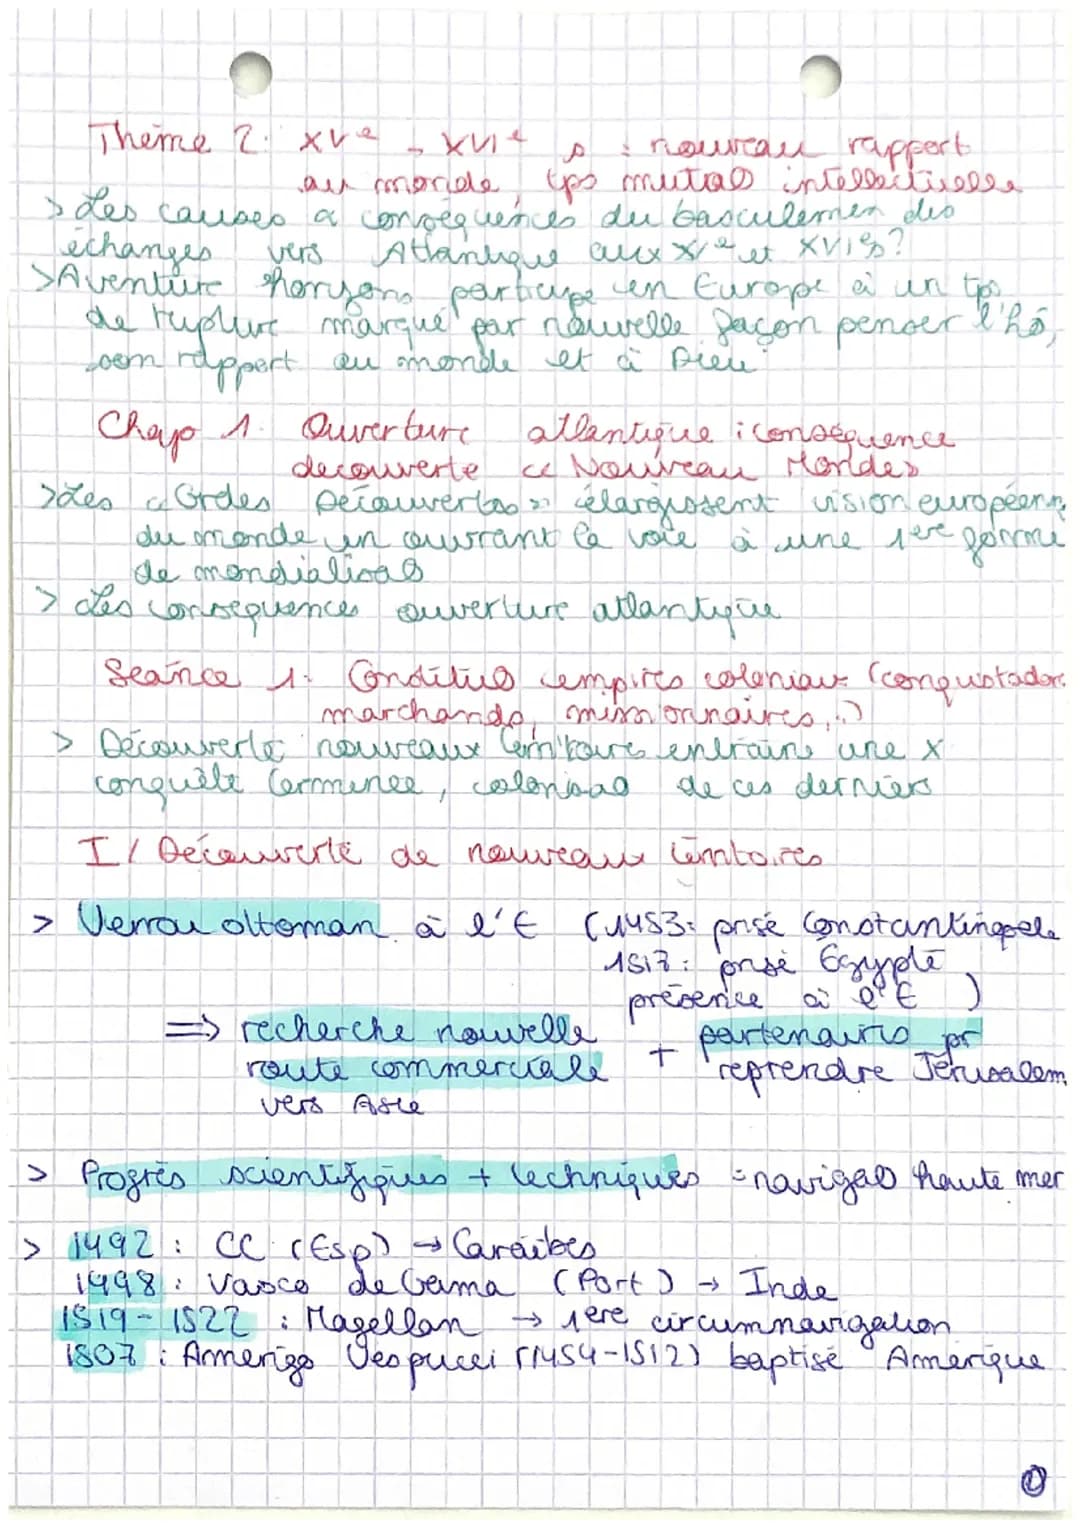 Thème 2: XVe - XVIe s : nouveau rapport
au monde, tps mutas intellectuelle
> Les causes & conséquences du basculemen des
échanges vers Atlantique aux XVe et XVIs?
> Aventure horizons participe en Europe à un tps
de rupture marqué par nouvelle façon penser l'hô,
son rapport au monde et à Dieu
Chap 1. Ouverture atlantique : conséquence
decouverte ce Nouveau Mondes
> Les "Grdes Découvertes" élargissent vision européenn
du monde en ouvrant la voie à une 1ere forme
de mondialisas
> Les conséquences ouverture atlantique
Seance 1: Conditus empires coloniaux (conquistador
marchands, missionnaires,..)
> Découverte nouveaux territoires entraine une x
conquête terminee, colonisas de ces derniers
I/ Découverte de nouveaux territoires
> Verrou ottoman à l'E (1453: prise Constantinople
1517: prise Egypte
présence à l'E )
=> recherche nouvelle + partenairis pr
route commerciale reprendre Jérusalem
vers Asie
> Progrès scientifiques + techniques = navigas haute mer
> 1492 : CC (Esp) → Caraïbes
1498 : Vasco de Gama (Port) → Inde
1519-1522 : Magellan → 1ere circumnavigation
1507 : Amerigo Vespucci (1454-1512) baptisé Amérique
1